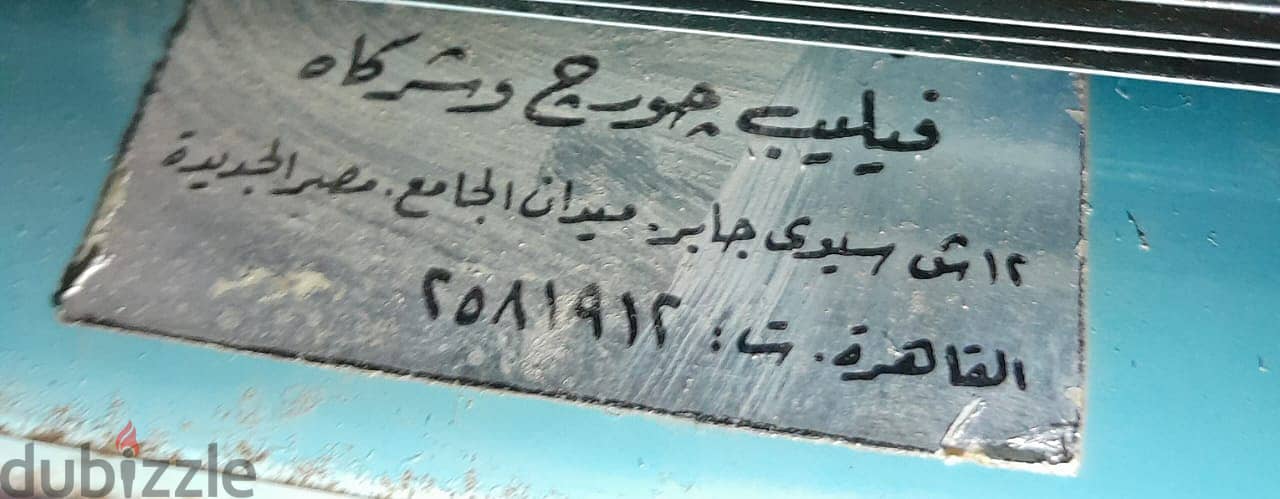 فيليب چورچ وشركاه
١٢ ش سيوى جابر. ميدان الجامع. مصر الجديدة
القاهرة. ت: ٢٥٨١٩١٢
dubizzle